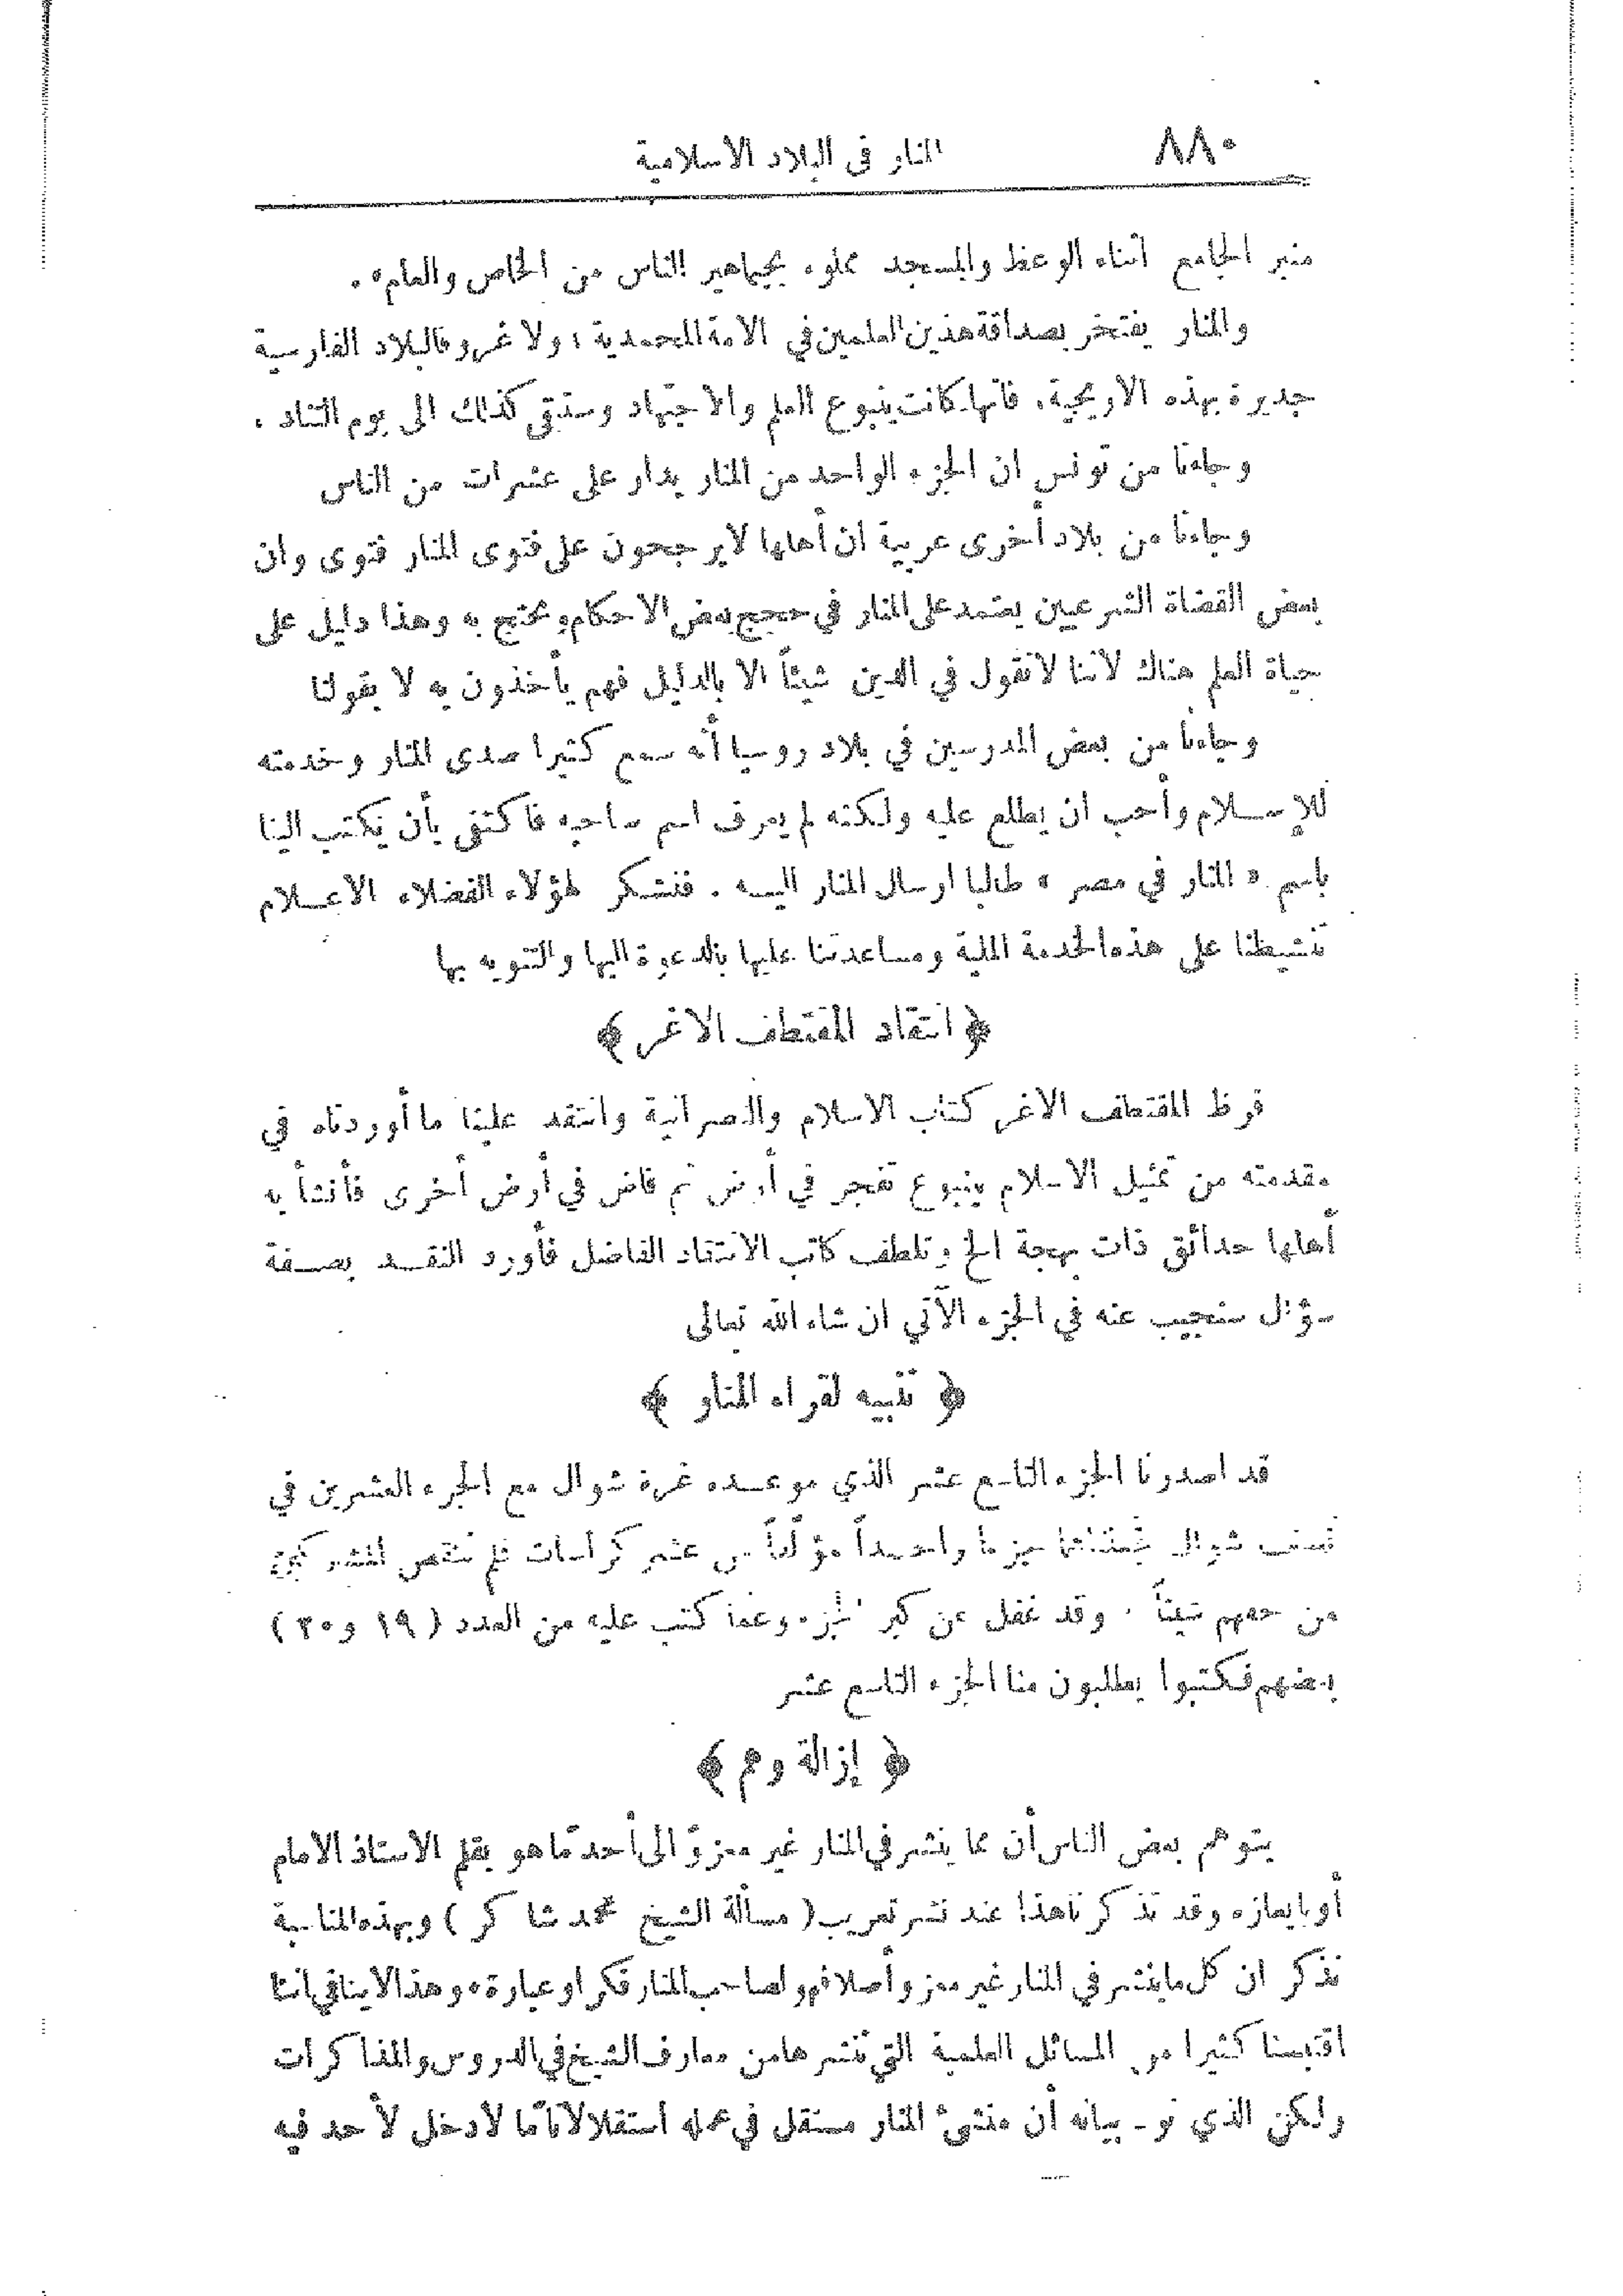 ٨٨٠ المنار في البلاد الاسلامية
منبر الجامع أثناء الوعظ والمسجد مملوء بجماهير الناس من الخاص والعام» .
والمنار يفتخر بصداقة هذين العلمين في الامة المحمدية ، ولا غرو فالبلاد الفارسية
جديرة بهذه الاريحية، فانها كانت ينبوع العلم والاجتهاد وستبقى كذلك الى يوم التناد .
وجاءنا من تونس ان الجزء الواحد من المنار يدار على عشرات من الناس
وجاءنا من بلاد أخرى عربية ان أهلها لايرجحون على فتوى المنار فتوى وان
بعض القضاة الشرعيين يعتمد على المنار في حجج بعض الاحكام ويحتج به وهذا دليل على
حياة العلم هناك لأننا لانقول في الدين شيئاً الا بالدليل فهم يأخذون به لا بقولنا
وجاءنا من بعض المدرسين في بلاد روسيا أنه سمع كثيرا صدى المنار وخدمته
للإسلام وأحب ان يطلع عليه ولكنه لم يعرف اسم صاحبه فاكتفى بأن يكتب الينا
باسم « المنار في مصر » طالبا ارسال المنار اليه . فنشكر لهؤلاء الفضلاء الاعلام
تنشيطنا على هذه الخدمة الملية ومساعدتنا عليها بالدعوة اليها والتنويه بها
﴿ انتقاد المقتطف الاغر ﴾
قرظ المقتطف الاغر كتاب الاسلام والنصرانية وانتقد علينا ما أوردناه في
مقدمته من تمثيل الاسلام بينبوع تفجر في أرض ثم فاض في أرض أخرى فأنشأ به
أهلها حدائق ذات بهجة الخ وتلطف كاتب الانتقاد الفاضل فأورد النقد بصفة
سؤال سنجيب عنه في الجزء الآتي ان شاء الله تعالى
﴿ تنبيه لقراء المنار ﴾
قد اصدرنا الجزء التاسع عشر الذي موعده غرة شوال مع الجزء العشرين في
نصف شوال جزءا واحداً مؤلفاً من عشر كراسات فلم
من حقهم شيئاً . وقد غفل عن كبر الجزء وعما كتب عليه من العدد ( ١٩ و ٢٠ )
بعضهم فكتبوا يطلبون منا الجزء التاسع عشر
﴿ إزالة وهم ﴾
يتوهم بعض الناس أن مما ينشر في المنار غير معزوّ الى أحد ما هو بقلم الاستاذ الامام
أو بايعازه وقد تذكرنا هذا عند نشر تعريب ( مسألة الشيخ محمد شاكر ) وبهذه المناسبة
نذكر ان كل ماينشر في المنار غير معزو أصلا فهو لصاحب المنار فكرا وعبارة، وهذا لاينافي اننا
اقتبسنا كثيرا من المسائل العلمية التي ننشرها من معارف الشيخ في الدروس والمذاكرات
ولكن الذي بيانه أن منشئ المنار مستقل في عمله استقلالا تامًّا لا دخل لأحد فيه